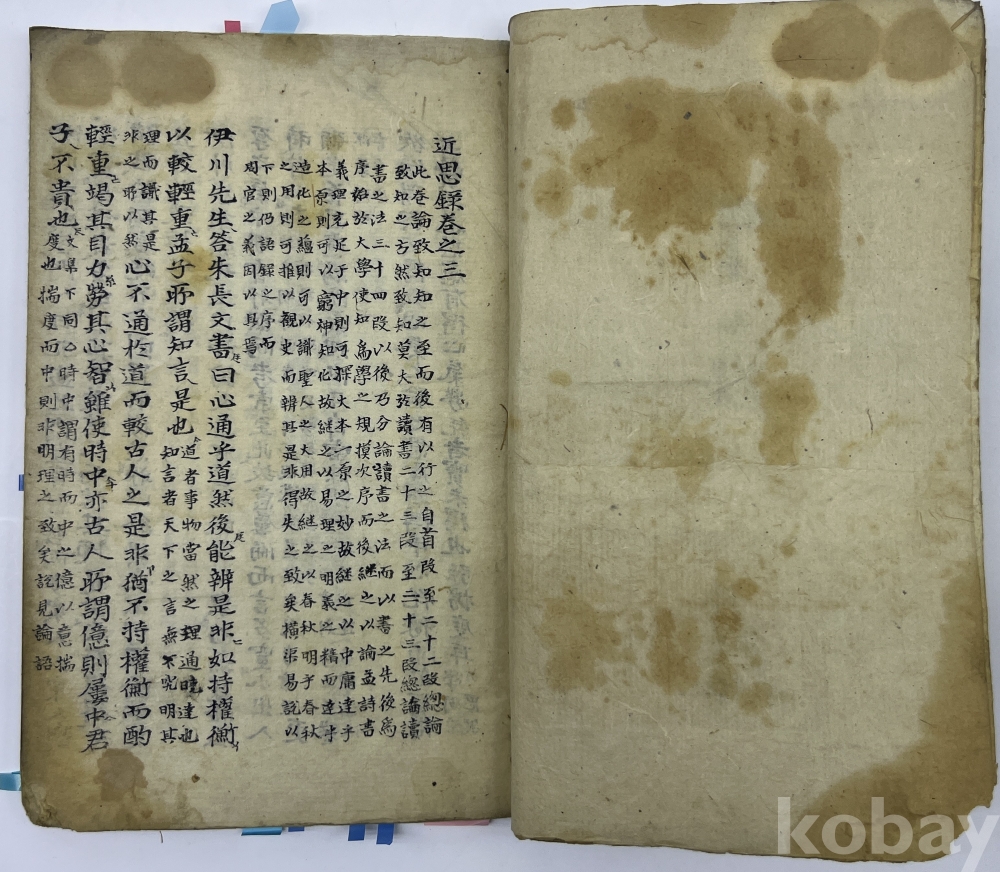 近思錄卷之三
此卷論致知知之至而後有以行之自首段至二十二段總論
致知之方然致知莫大於讀書二十三段至三十三段總論讀
書之法三十四段以後乃分論讀書之法而以書之先後為
序始於大學使知為學之規模次序而後継之以論孟詩書
義理充足于中則可探大本一原之妙故継之以中庸達乎
本原則可以窮神知化故継之以易理之明義之精而達乎
造化之蘊則可以識聖人之大用故継之以春秋明乎春秋
之用則可推以觀史而辨其是非得失之致矣橫渠易說以
下則仍語錄之序而
周官之義因以具焉
伊川先生答朱長文書曰心通乎道然後能辨是非如持權衡
以較輕重孟子所謂知言是也
道者事物當然之理通曉達也
知言者天下之言無不究明其
理而識其是
非之所以然
心不通於道而較古人之是非猶不持權衡而酌
輕重竭其目力勞其心智雖使時中亦古人所謂億則屢中君
子不貴也
文集下同○時中謂有時而中之億以意揣
度也揣度而中則非明理之致矣說見論語
kobay